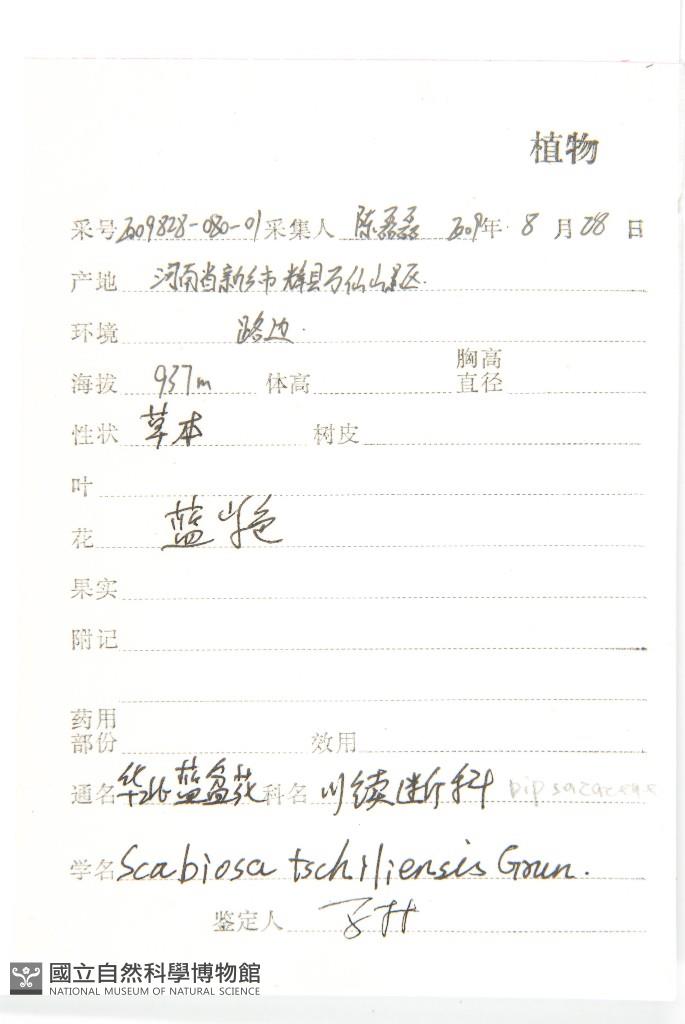 植物
采号 2009828-080-01 采集人 陈磊磊 2009年 8 月 28 日
产地 河南省新乡市辉县万仙山景区.
环境 路边.
海拔 937m 体高 胸高直径
性状 草本 树皮
叶
花 蓝紫色
果实
附记
药用部份 效用
通名 华北蓝盆花 科名 川续断科 Dipsacaceae
学名 Scabiosa tschiliensis Grun.
鉴定人
國立自然科學博物館
NATIONAL MUSEUM OF NATURAL SCIENCE